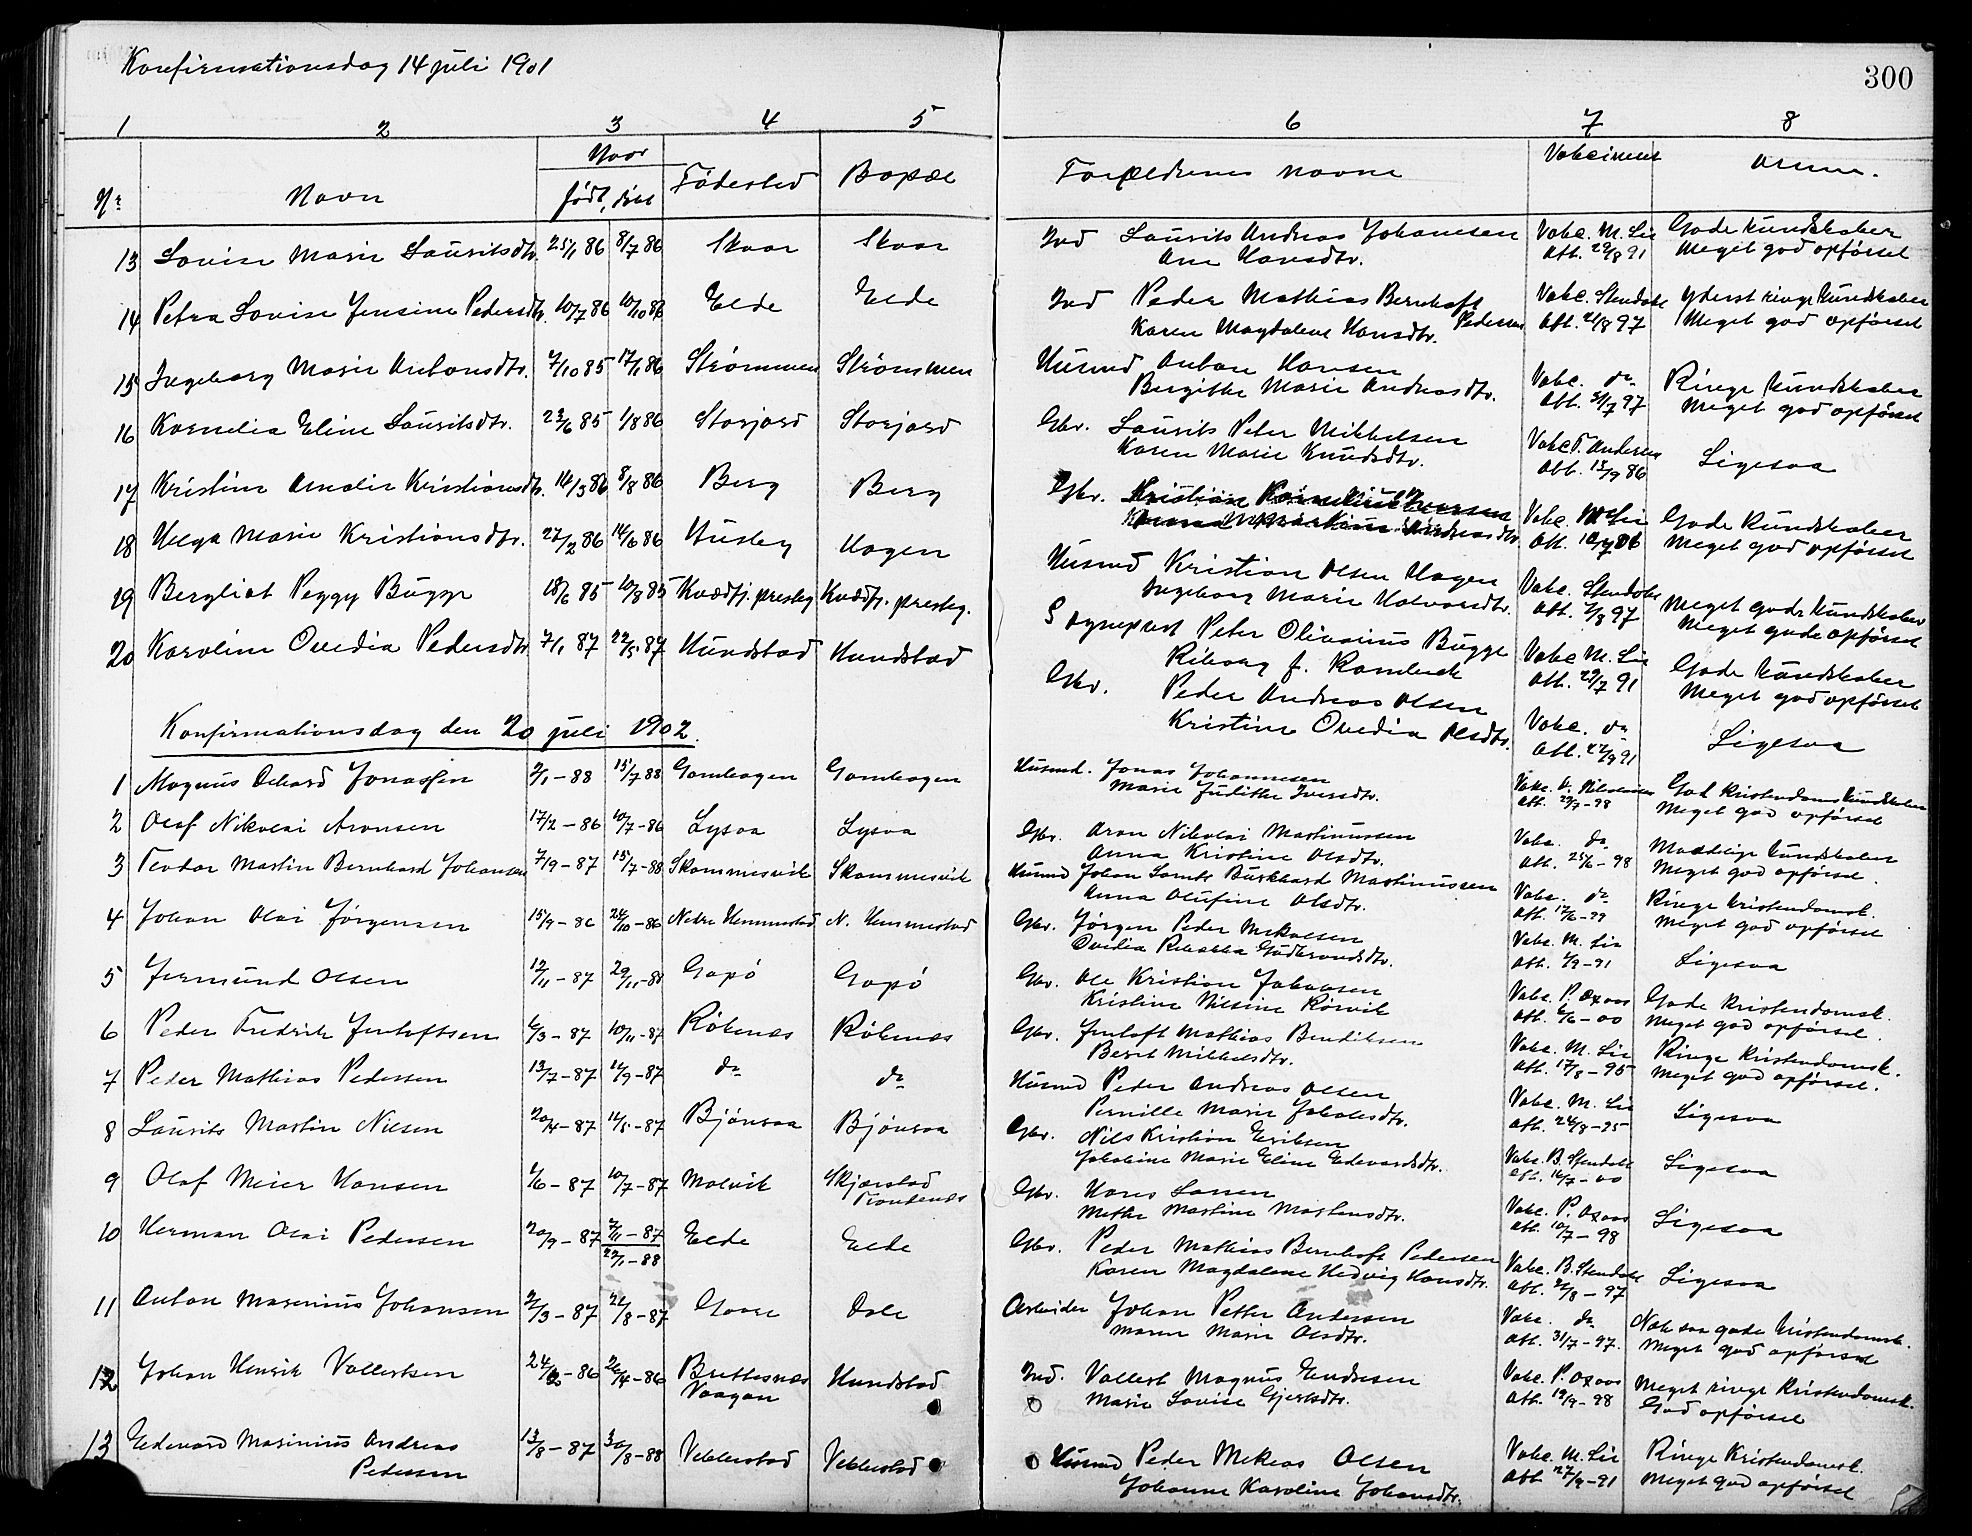 Konfirmationsdag 14 juli 1901
300
1 2 3 4 5 6 7 8
Naar
Nr Navn født, døbt Fødested Bopæl Forældrenes navne Vakcineret Anm.
13 Lovise Marie Lauritsdtr. 25/1 86 8/7 86 Skaar Skaar Ind Laurits Andreas Johannesen Vakc. M. Lie Gode kundskaber
Ane Hansdtr. Att. 29/8 91 Meget god opførsel
14 Petra Lovise Jensine Pedersdtr. 10/7 86 10/10 86 Elde Elde Ind Peder Mathias Bernhoft Vakc. Stendahl Yderst ringe kundskaber
Pedersen
Karen Magdalene Hansdtr. Att. 2/8 97 Meget god opførsel
15 Ingeborg Marie Antonsdtr. 7/10 85 17/1 86 Strømmen Strømmen Husmd Anton Hansen Vakc. do Ringe kundskaber
Bergithe Marie Andreasdtr. Att. 31/7 97 Meget god opførsel
16 Kornelia Eline Lauritsdtr. 23/6 85 1/8 86 Storjord Storjord Gbr. Laurits Peter Mikkelsen Vakc T. Andersen Ligesaa
Karen Marie Knudsdtr. Att. 15/9 86
17 Kristine Amalie Kristiansdtr. 14/3 86 8/8 86 Berg Berg Gbr. Kristian Iversen Vakc. M Lie Gode kundskaber
Andreasdtr. Att. Meget god opførsel
18 Helga Marie Kristiansdtr. 27/2 86 14/6 86 Husby Hagen Husmd Kristian Olsen Hagen Vakc. Stendahl Meget gode kundskaber
Ingeborg Marie Halvorsdtr. Att. 2/8 97 Meget gode opførsel
19 Bergliot Peggy Bugge 18/6 85 10/8 85 Kvædfj. presteg Kvædfj. presteg. Sognepræst Peter Olivarius Bugge Vakc M. Lie Gode kundskaber
f. Rambech Att. 29/7 91 Meget god opførsel
20 Karoline Ovedia Pedersdtr 7/1 87 22/5 87 Hundstad Hundstad Gbr. Peder Andreas Olsen Vakc. do Ligesaa
Kristine Ovedia Olsdtr. Att. 22/9 91
Konfirmationsdag den 20 juli 1902.
1 Magnus Jonassen 2/1 - 88 15/7 88 Gamhagen Gamhagen Husmd. Jonas Johannesen Vakc. God kristendomskundskaber
Marie Judithe Iversdtr. Att. 29/7 - 98 Meget god opførsel
2 Olaf Nikolai Aronsen 17/2 - 86 10/7 - 86 Lysaa Lysaa Gbr. Aron Nikolai Martinussen Vakc. do Maadelige kundskaber
Anna Kristine Olsdtr. Att. 25/6 - 98 Meget god opførsel.
3 Teodor Martin Bernhard Johansen 7/9 - 87 15/7 - 88 Skammesvik Skammesvik Husmd Johan Burkhard Martinussen Vakc. do Ringe kristendomsk.
Anna Olufine Olsdtr. Att. 17/6 - 99 Meget god opførsel
4 Johan Olai Jørgensen 15/9 - 86 24/10 - 86 Nedre Hemmestad N. Hemmestad Gbr. Jørgen Peder Mikalsen Vakc. M. Lie Ligesaa
Ovidia Rebekka Gudbrandsdtr. Att. 4/9 - 91
5 Jermund Olsen 12/11 - 87 29/11 - 88 Gapø Gapø Gbr. Ole Kristian Johansen Vakc. P. Oxaas Gode kristendomsk.
Kristine Nilsine Rørvik Att. 6/6 - 00 Meget god opførsel.
6 Peder Fredrik Jentoftsen 6/3 - 87 10/11 - 87 Røkenes Røkenes Gbr. Jentoft Mathias Bendiksen Vakc. M. Lie Ringe kristendomsk.
Beret Mikkelsdtr. Att. 17/8 - 95 Meget god opførsel.
7 Peder Mathias Pedersen 13/7 - 87 14/9 - 87 do do Husmd Peder Andreas Olsen Vakc. M. Lie Ligesaa
Pernille Marie Jakobsdtr. Att. 24/8 - 95
8 Laurits Martin Nilsen 20/4 - 87 14/5 - 87 Bjønraa Bjønraa Gbr. Nils Kristian Eriksen Vakc. B. Stendahl Ligesaa
Jakobine Marie Eline Edvardsdtr. Att. 14/7 - 00
9 Olaf Meier Hansen 1/6 - 87 10/7 - 87 Malvik Skjærstad Gbr. Hans Larsen Vakc. P. Oxaas Ligesaa
Trondenes Methe Martine Mortensdtr. Att. 10/7 - 98
10 Herman Olai Pedersen 20/9 - 87 2/11 - 87 Elde Elde Gbr. Peder Mathias Bernhoft Pedersen Vakc. B. Stendahl Ligesaa
22/1 - 88 Karen Magdalene Hedvig Hansdtr. Att. 2/8 - 97
11 Anton Marinius Johansen 2/3 - 87 21/8 - 87 Gaare Dale Arbeider Johan Petter Andersen Vakc. do Nok saa gode kristendomsk.
Maren Marie Olsdtr. Att. 31/7 - 97. Meget god opførsel
12 Johan Henrik Vollertsen 24/2 - 86 26/4 - 86 Brettesnes Hundstad Ind. Vollert Magnus Endresen Vakc. P. Oxaas Meget ringe kristendomsk.
Vaagan Marie Lovise Gjertsdtr. Att. 19/9 - 98 God opførsel
13 Edevard Marinius Andreas 13/8 - 87 30/8 - 88 Vebberstad Vebberstad Husmd Peder Mekias Olsen Vakc. M. Lie Ringe kristendomsk.
Pedersen Johanne Karoline Johansdtr. Att. 27/9 - 91 Meget god opførsel